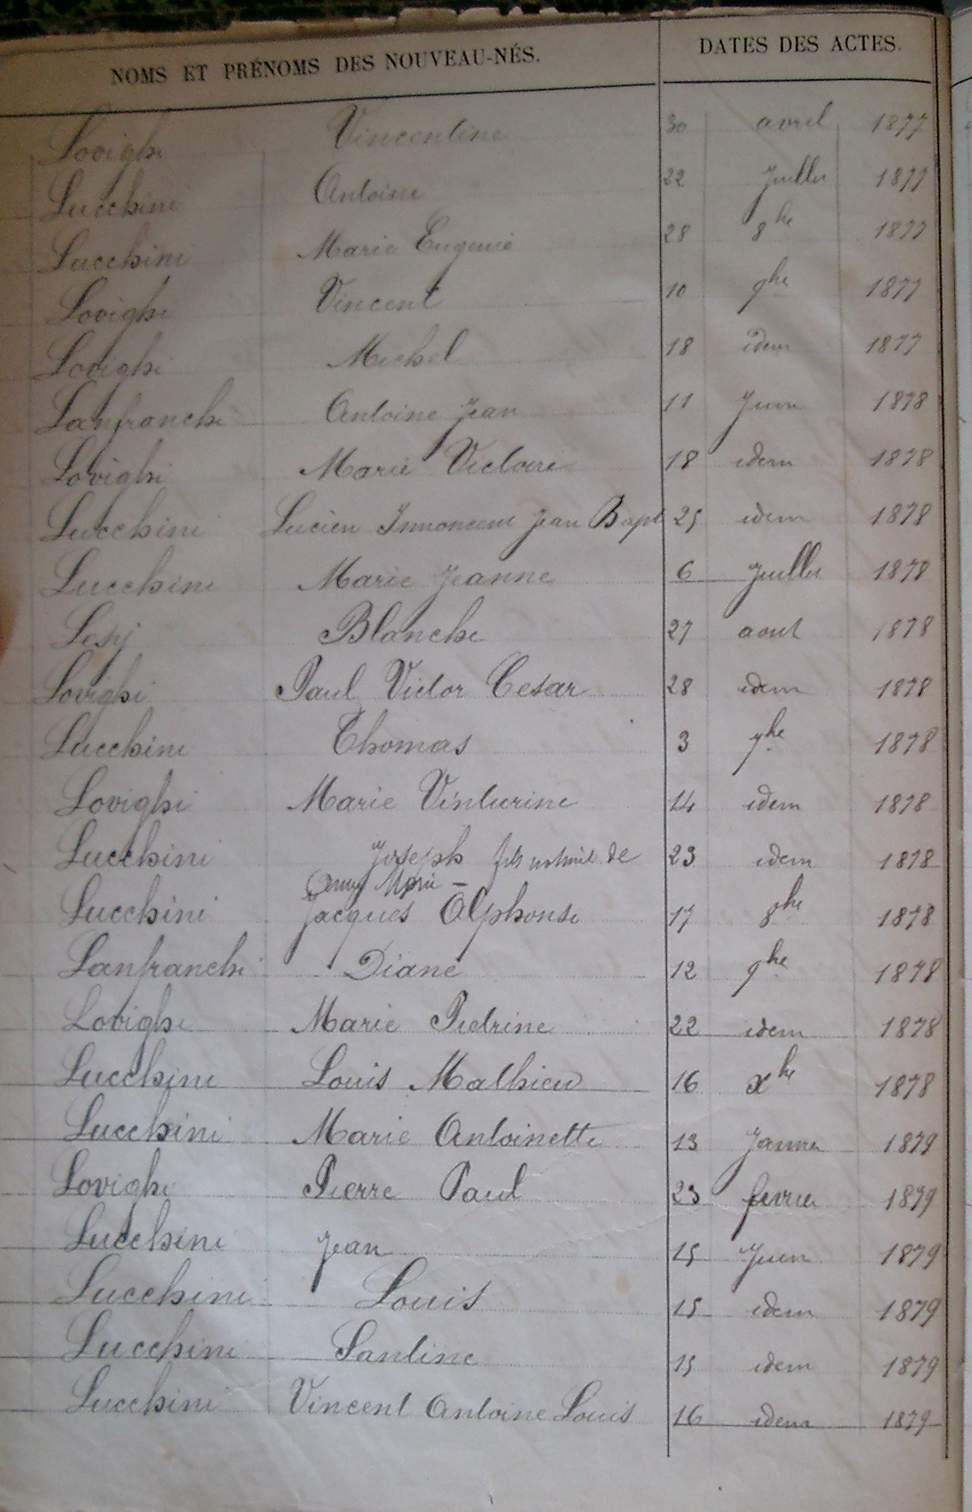 NOMS ET PRÉNOMS DES NOUVEAU-NÉS. DATES DES ACTES.
Lovighi Vincentine 30 avril 1877
Lucchini Antoine 22 Juillet 1877
Lucchini Marie Eugenie 28 8bre 1877
Lovighi Vincent 10 9bre 1877
Lovighi Michel 18 idem 1877
Lanfranchi Antoine Jean 11 Juin 1878
Lovighi Marie Victoire 18 idem 1878
Lucchini Lucien Innocent Jean Bapt 25 idem 1878
Lucchini Marie Jeanne 6 Juillet 1878
Blanche 27 aout 1878
Lovighi Paul Victor Cesar 28 idem 1878
Lucchini Thomas 3 7bre 1878
Lovighi Marie Vinturine 14 idem 1878
Lucchini Joseph fils naturel de 23 idem 1878
Marie
Lucchini Jacques Alphonse 17 8bre 1878
Lanfranchi Diane 12 9bre 1878
Lovighi Marie Pietrine 22 idem 1878
Lucchini Louis Mathieu 16 xbre 1878
Lucchini Marie Antoinette 13 Janvier 1879
Lovighi Pierre Paul 23 fevrier 1879
Lucchini Jean 15 Juin 1879
Lucchini Louis 15 idem 1879
Lucchini Santine 15 idem 1879
Lucchini Vincent Antoine Louis 16 idem 1879